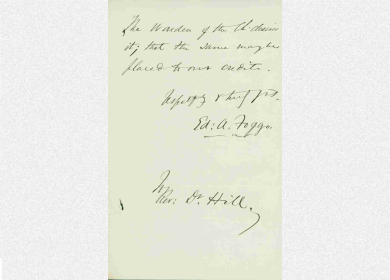 The Warden of the Ch desires
it; that the same may be
placed to our credit.
Respy & truly yrs.
Ed: A. Foggo.
To
Rev: Dr. Hill.